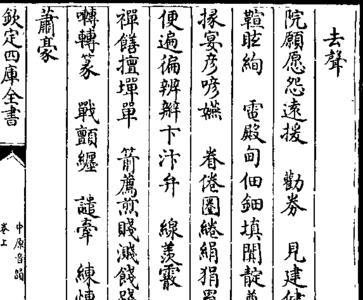 去聲
院願愿怨遠援 勸券 見建
鞾眩絢 電殿甸佃鈿填闐靛
掾宴彥喭嬿 眷倦圈綣絹狷
便遍徧辨辯卞汴弁 線羨霰
禪饍擅墠單 箭薦煎賤濺餞
囀轉篆 戰顫纏 譴牽 練
蕭豪
欽定四庫全書
中原音韻
卷上